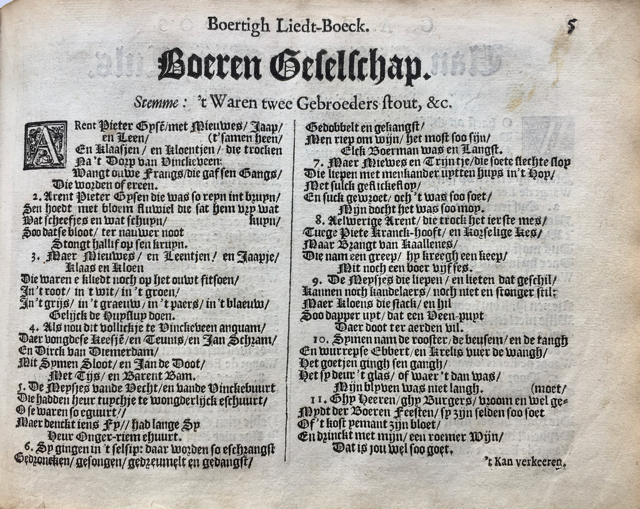 Boertigh Liedt-Boeck. 5
Boeren Geselschap.
Stemme: 't Waren twee Gebroeders stout, &c.
ARent Pieter Gysē/met Mieuwes/ Jaap/
en Leen/ (t'samen heen/
En Klaasjen/ en Kloentjen/ die trocken
Na 't Dorp van Vinckeveen:
Wangt ouwe Frangs/die gaf sen Gangs/
Die worden of ereen.
2. Arent Pieter Gysen die was so reyn int bruyn/
Sen hoedt met bloem fluwiel die sat hem vry wat
Wat scheefjes en wat schuyn/ kuyn/
Soo datse bloot/ ter nauwer noot
Stongt hallif op sen kruyn.
3. Maer Mieuwes/ en Leentjen/ en Jaapje/
Klaas en Kloen
Die waren e kliedt noch op het ouwt fitsoen/
In 't root/ in 't wit/ in 't groen/
In 't grijs/ in 't graeuw/ in 't paers/ in 't blaeuw/
Gelijck de Huysluy doen.
4. Als nou dit vollickje te Vinckeveen anquam/
Daer vongdese Keesjē/ en Teunis/ en Jan Schram/
En Dirck van Diemerdam/
Mit Symen Sloot/ en Jan de Doot/
Met Tijs/ en Barent Bam.
5. De Meysjes vande Vecht/ en vande Vinckebuurt
Die hadden heur tuychje te wongderlijck eschuurt/
O se waren so eguurt//
Maer denckt iens Fy// had lange Sy
Heur Onger-riem ehuurt.
6. Sy gingen in 't selsip: daar worden so eschrangst
Gedroncken/ gesongen/ gedreumelt en gedangst/
Gedobbelt en gekangst/
Men riep om wijn/ het most soo sijn/
Elck Boerman was en Langst.
7. Maer Miewes en Trijntje/ die soete slechte slop
Die liepen met menkander uytten huys in 't Hop/
Met sulck geflickeflop/
En suck gewroet/ och 't was soo soet/
Mijn docht het was soo moy.
8. Aelwerige Arent/ die trock het ierste mes/
Tuege Piete Kranck-hooft/ en Korselige Kes/
Maar Brangt van Kaallenes/
Die nam een greep/ hy kreegh een keep/
Mit noch een boer vijf ses.
9. De Meysjes die liepen/ en lieten dat geschil/
Kannen noch kandelaers/ noch niet en stonger stil:
Maer Kloens die stack/ en hil
Soo dapper uyt/ dat een Veen-puyt
Daer doot ter aerden vil.
10. Symen nam de rooster/ de beusem/ en de tangh
En wurrepse Ebbert/ en Krelis vuer de wangh/
Het goetjen gingh sen gangh/
Het sy deur 't glas/ of waer 't dan was/
Mijn blyven was niet langh. (moet/
11. Ghy Heeren/ ghy Burgers/ vroom en wel ge-
Mydt der Boeren Feesten/ sy zijn selden soo soet
Of 't kost yemant zijn bloet/
En drinckt met mijn/ een roemer Wijn/
Dat is jou wel soo goet.
't Kan verkeeren.